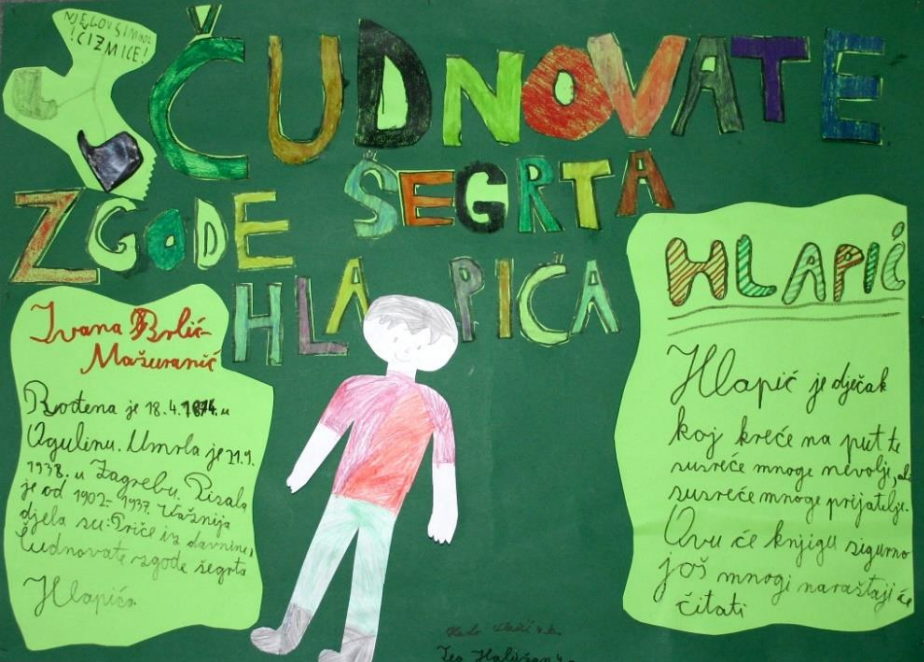 NJEGOVSIMONE
!ČIZMICE!
ČUDNOVATE
ZGODE ŠEGRTA
HLAPIĆA
Ivana Brlić-
Mažuranić
Rođena je 18.4.1874. u
Ogulinu. Umrla je 21.9.
1938. u Zagrebu. Pisala
je od 1902-1937. Važnija
djela su: Priče iz davnine,
Čudnovate zgode šegrta
Hlapića
HLAPIĆ
Hlapić je dječak
koj kreće na put te
susreće mnoge nevolje, ali
susreće mnoge prijatelje.
Ovu će knjigu sigurno
još mnogi naraštaji će
čitati